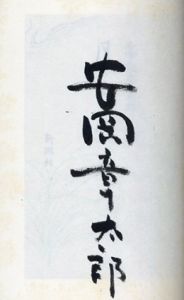 安岡章太郎